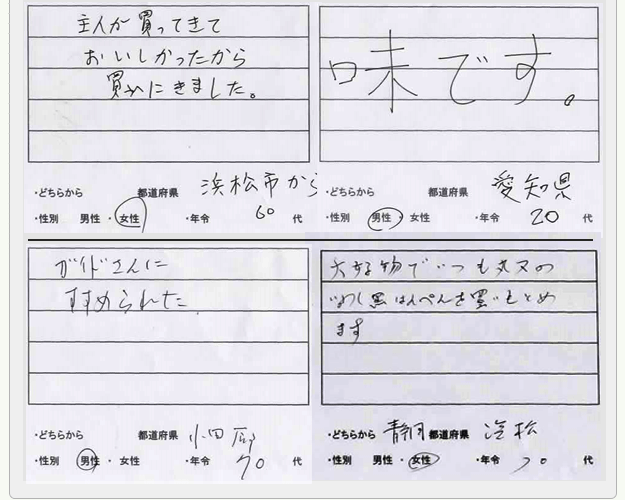 主人が買ってきて
おいしかったから
買いにきました。
・どちらから 都道府県 浜松市から
・性別 男性・女性 ・年令 60 代
味です。
・どちらから 都道府県 愛知県
・性別 男性・女性 ・年令 20 代
ガイドさんに
すすめられた
・どちらから 都道府県 小田原
・性別 男性・女性 ・年令 70 代
大好物でいつも丸又の
いわし黒はんぺんを買いもとめ
ます
・どちらから 静岡 都道府県 浜松
・性別 男性・女性 ・年令 代